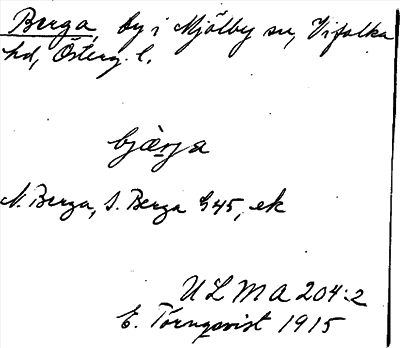 Berga, by i Mjölby sn, Vifolka
hd, Österg. l.
bjærja
N. Berga, S. Berga G45, ek
ULMA 204:2
E. Törnqvist 1915